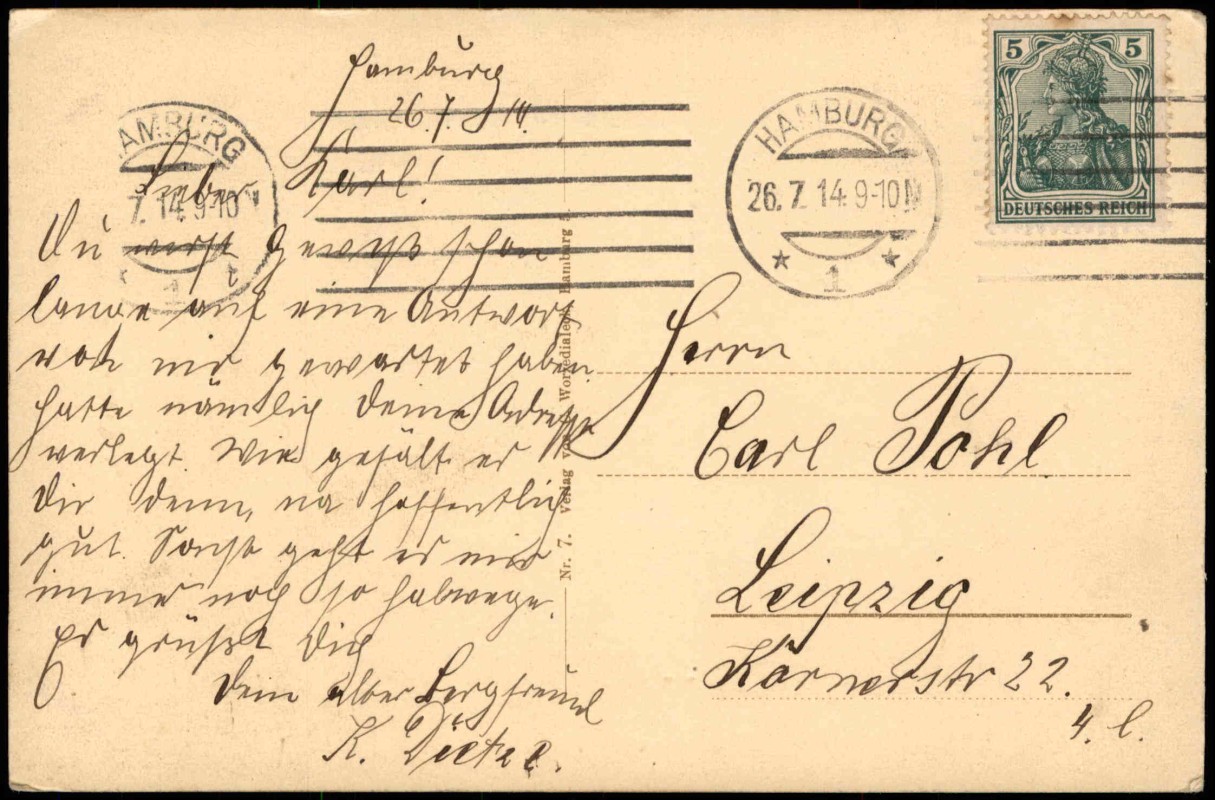 Hamburg
26.7.14.
Lieber Karl!
Du wirst gewiß schon
lange auf eine Antwort
von mir gewartet haben.
hatte nämlich deine Adresse
verlegt. Wie gefält es
Dir denn, na hoffentlich
gut. Sonst geht es mir
immer noch so halwege.
Es grüßt Dich
Dein alter Bergfreund
K. Dietze.
HAMBURG
7. 14. 9-10
1
HAMBURG
26. 7. 14. 9-10 N
* 1 *
5 5
DEUTSCHES REICH
Nr. 7. Verlag von Hamburg
Herrn
Carl Pohl
Leipzig
Körnerstr 22.
4. l.